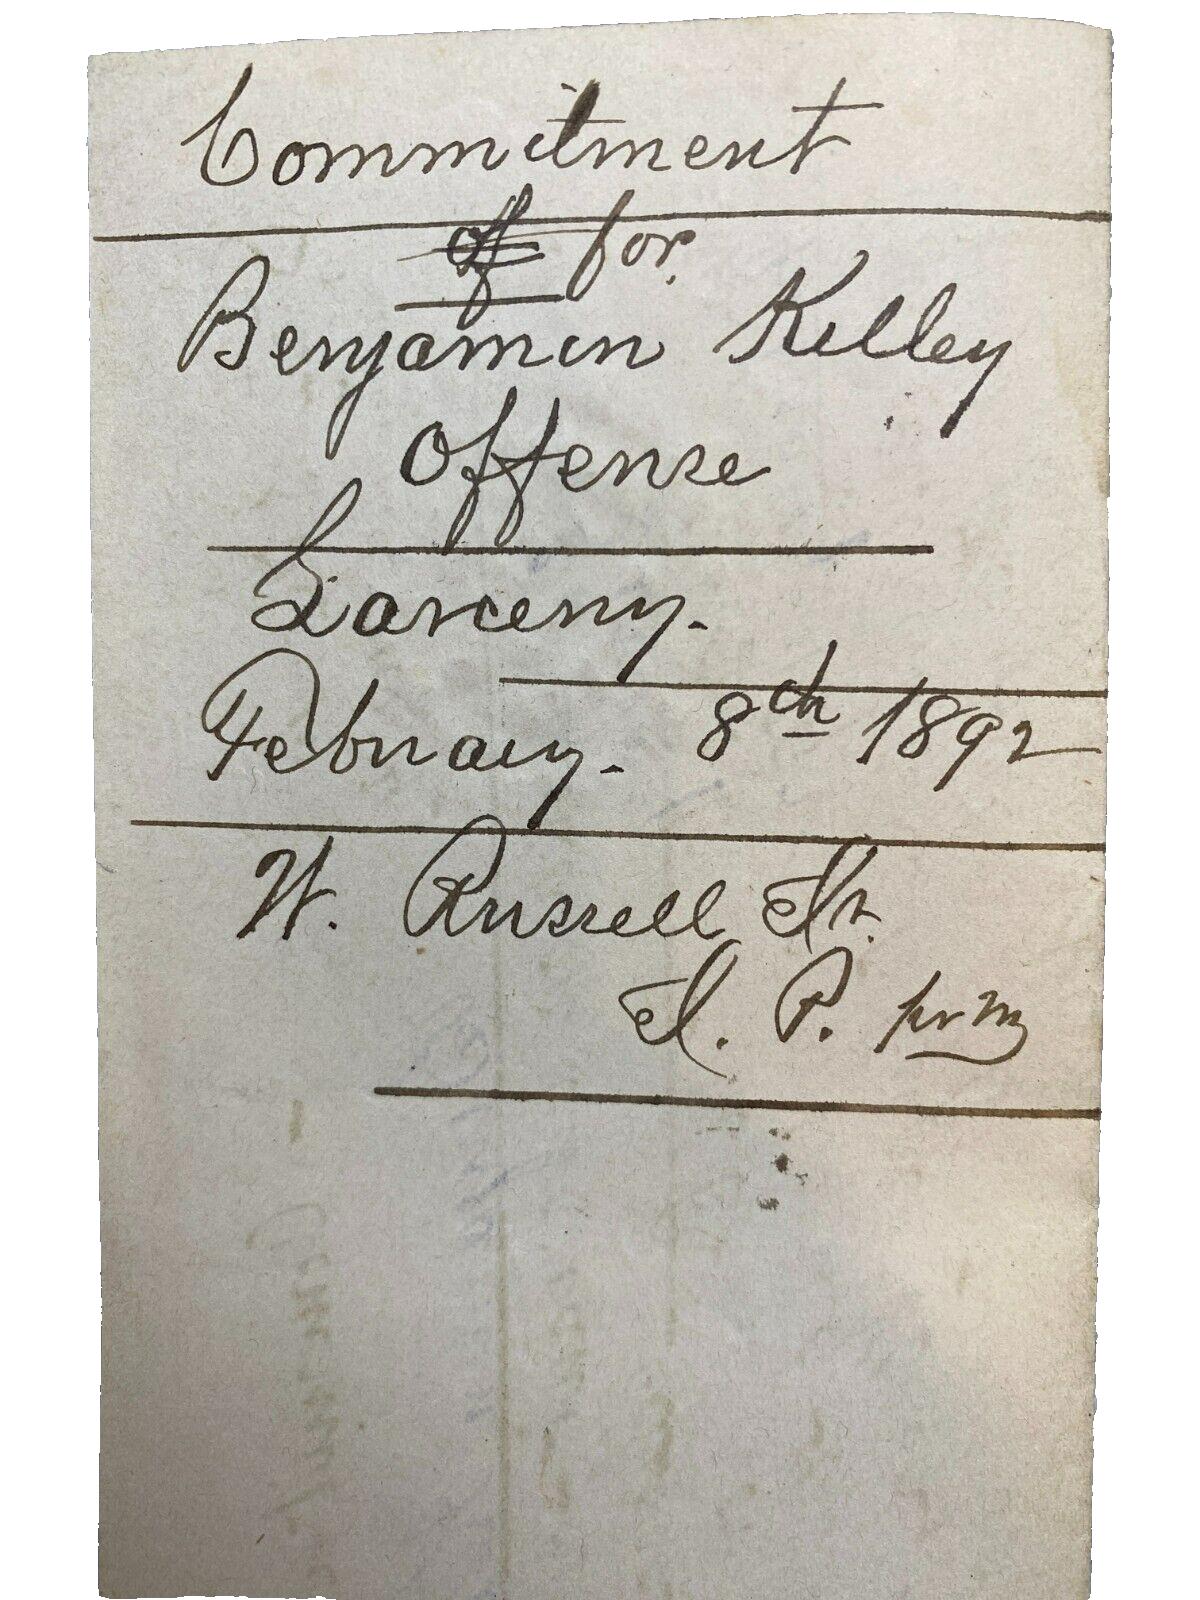 Commitment
of for
Benjamin Kelley
Offense
Larceny.
February. 8th 1892
W. Russell Jr.
J. P.